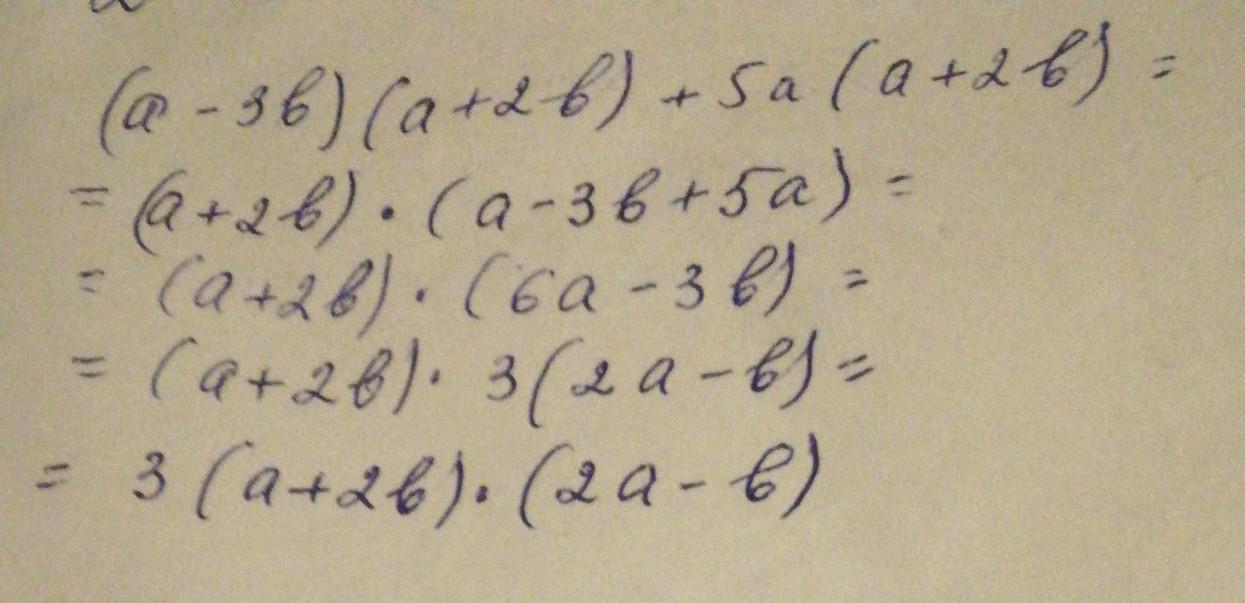 (a - 3b)(a + 2b) + 5a(a + 2b) =
= (a + 2b) · (a - 3b + 5a) =
= (a + 2b) · (6a - 3b) =
= (a + 2b) · 3(2a - b) =
= 3(a + 2b) · (2a - b)